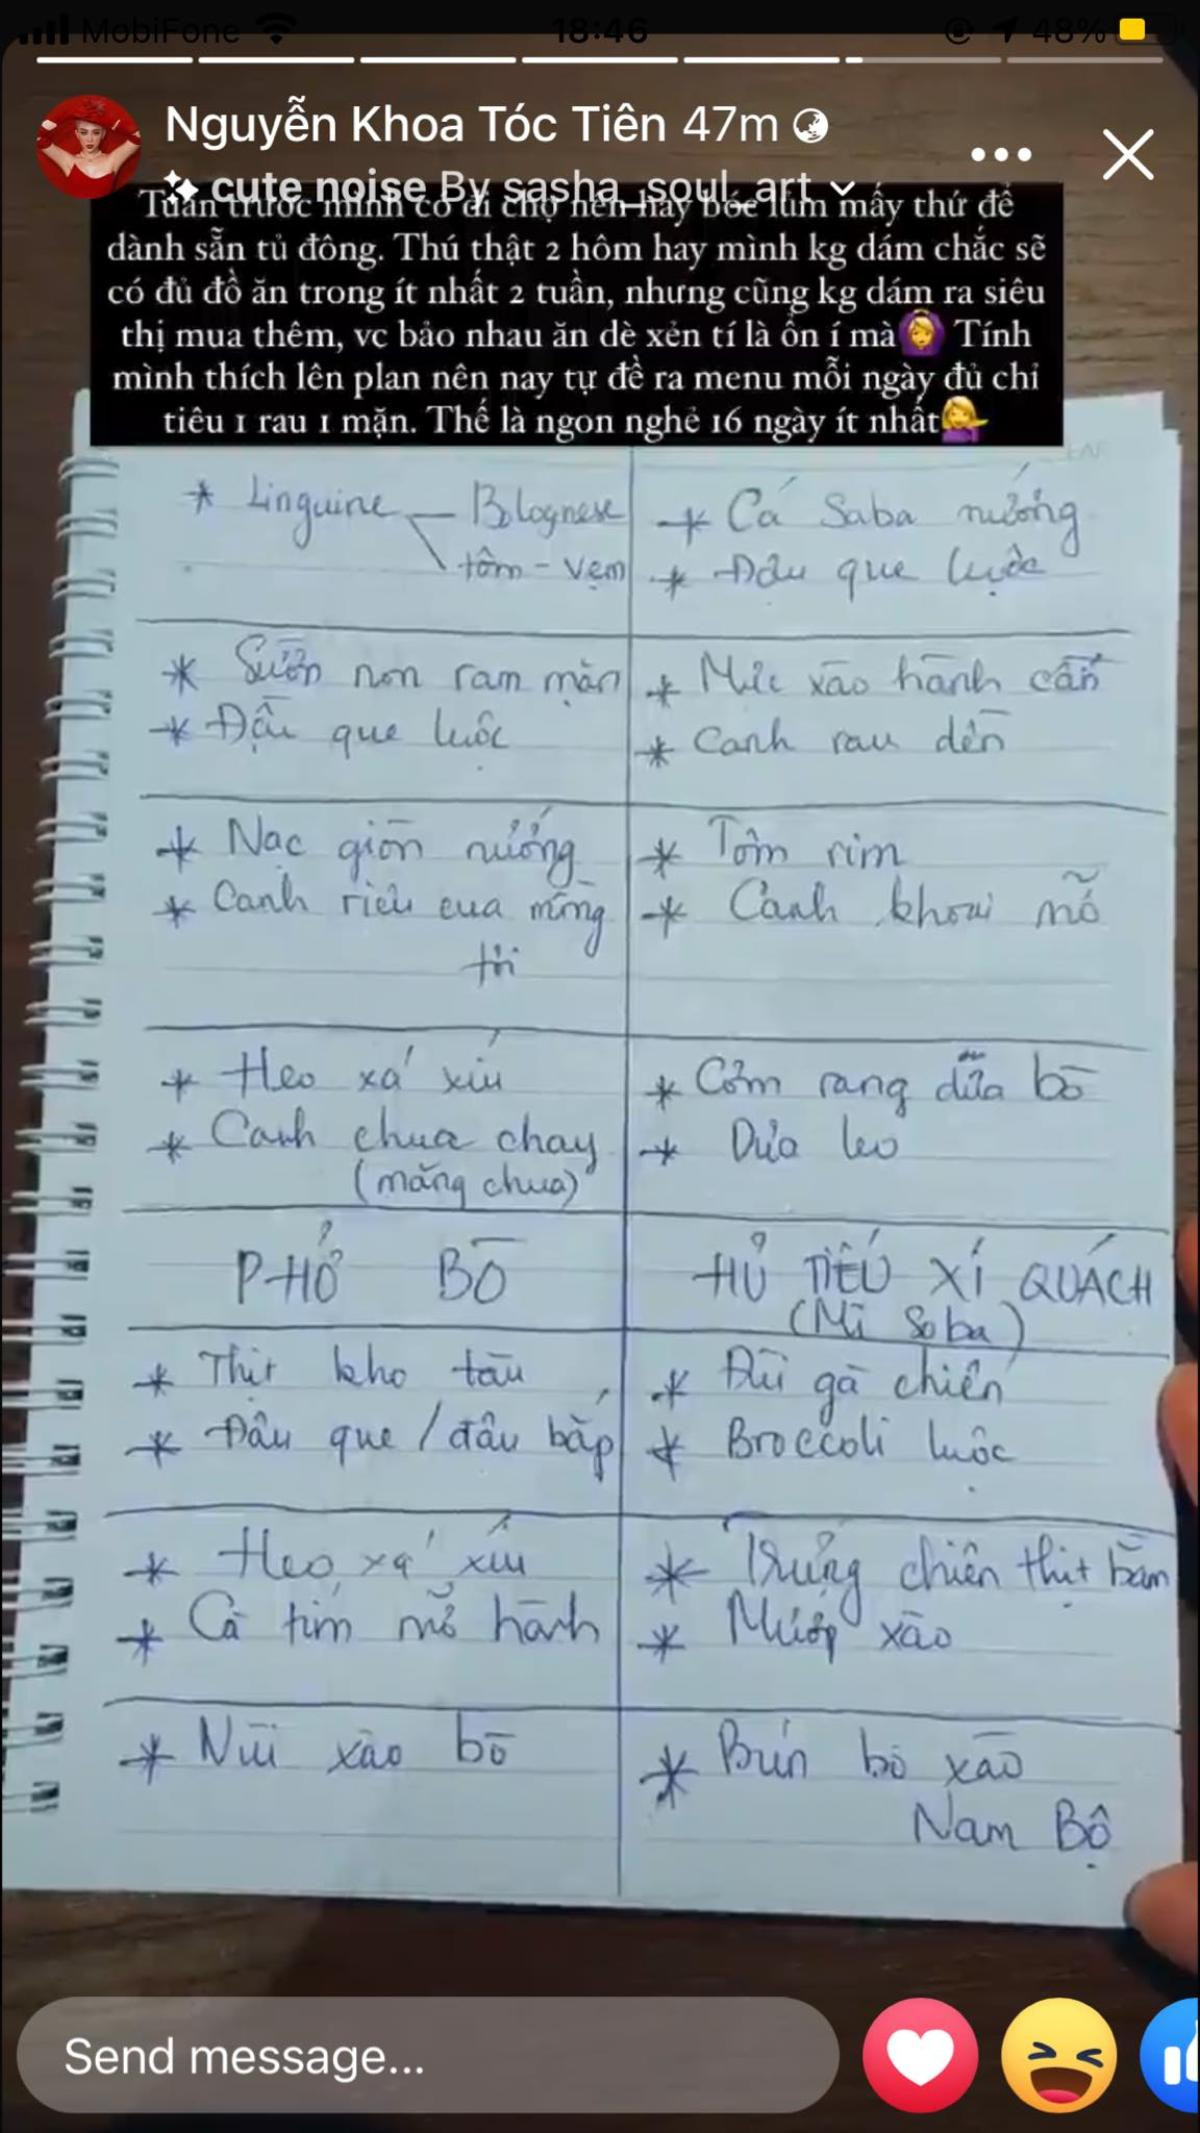 MobiFone
18:46
48%
Nguyễn Khoa Tóc Tiên 47m
cute noise By sasha_soul_art
Tuần trước mình có đi chợ nên hay bóc lủm mấy thứ để
dành sẵn tủ đông. Thú thật 2 hôm nay mình kg dám chắc sẽ
có đủ đồ ăn trong ít nhất 2 tuần, nhưng cũng kg dám ra siêu
thị mua thêm, vc bảo nhau ăn dè xẻn tí là ổn í mà🙆‍♀️ Tính
mình thích lên plan nên nay tự đề ra menu mỗi ngày đủ chỉ
tiêu 1 rau 1 mặn. Thế là ngon nghẻ 16 ngày ít nhất💁‍♀️
* Linguine — Bolognese
tôm - vẹm
* Cá Saba nướng
* Đậu que luộc
* Sườn non ram mặn
* Đậu que luộc
* Mực xào hành cần
* Canh rau dền
* Nạc giòn nướng
* Canh riêu cua mồng
tơi
* Tôm rim
* Canh khoai mỡ
* Heo xá xíu
* Canh chua chay
(măng chua)
* Cơm rang dưa bò
* Dưa leo
PHỞ BÒ
HỦ TIẾU XÍ QUÁCH
(Mì Soba)
* Thịt kho tàu
* Đậu que / đậu bắp
* Đùi gà chiên
* Broccoli luộc
* Heo xá xíu
* Cà tím mỡ hành
* Trứng chiên thịt bằm
* Mướp xào
* Nui xào bò
* Bún bò xào
Nam Bộ
Send message...